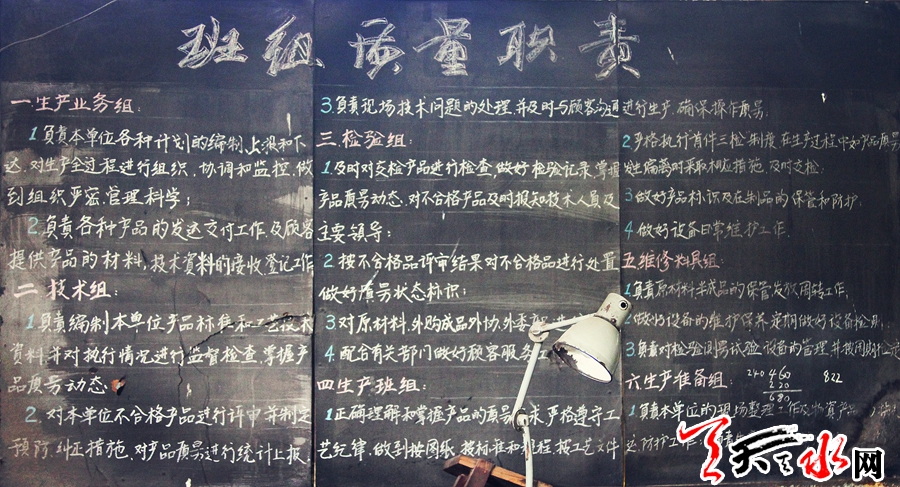 班组质量职责
一.生产业务组:
1.负责本单位各种计划的编制上报和下
达.对生产全过程进行组织.协调和监控,做
到组织严密.管理科学;
2.负责各种产品的发送交付工作及顾客
提供产品的材料,技术资料的接收登记工作
二 技术组:
1.负责编制本单位产品标准和工艺技术
资料并对执行情况进行监督检查,掌握产
品质量动态.
2.对本单位不合格产品进行评审并制定
预防.纠正措施.对产品质量进行统计上报.
3.负责现场技术问题的处理.并及时与顾客沟通
三.检验组:
1.及时对交检产品进行检查.做好检验记录.掌握
产品质量动态.对不合格产品及时报知技术人员及
主要领导;
2.按不合格品评审结果对不合格品进行处置
做好质量状态标识;
3.对原材料,外购成品外协,外委
4.配合有关部门做好顾客服务工
四 生产班组:
1.正确理解和掌握产品的质量 求 严格遵守工
艺纪律.做到按图纸.按标准和规程.按工艺文件
进行生产.确保操作质量;
2.严格执行首件三检制度.在生产过程中如产品质量
发生偏离时采取相应措施,及时交检;
3.做好产品标识及在制品的保管和防护.
4.做好设备日常维护工作.
五 维修灶具组:
1.负责原材料半成品的保管发放周转工作,
做好设备的维护保养定期做好设备检
3.负责对检验测量试验设备的管理并按周期检定
六生产准备组:
240 460 822
620
680
1.负责本单位的现场整理工作及物资产品
运防护工作
天天水网